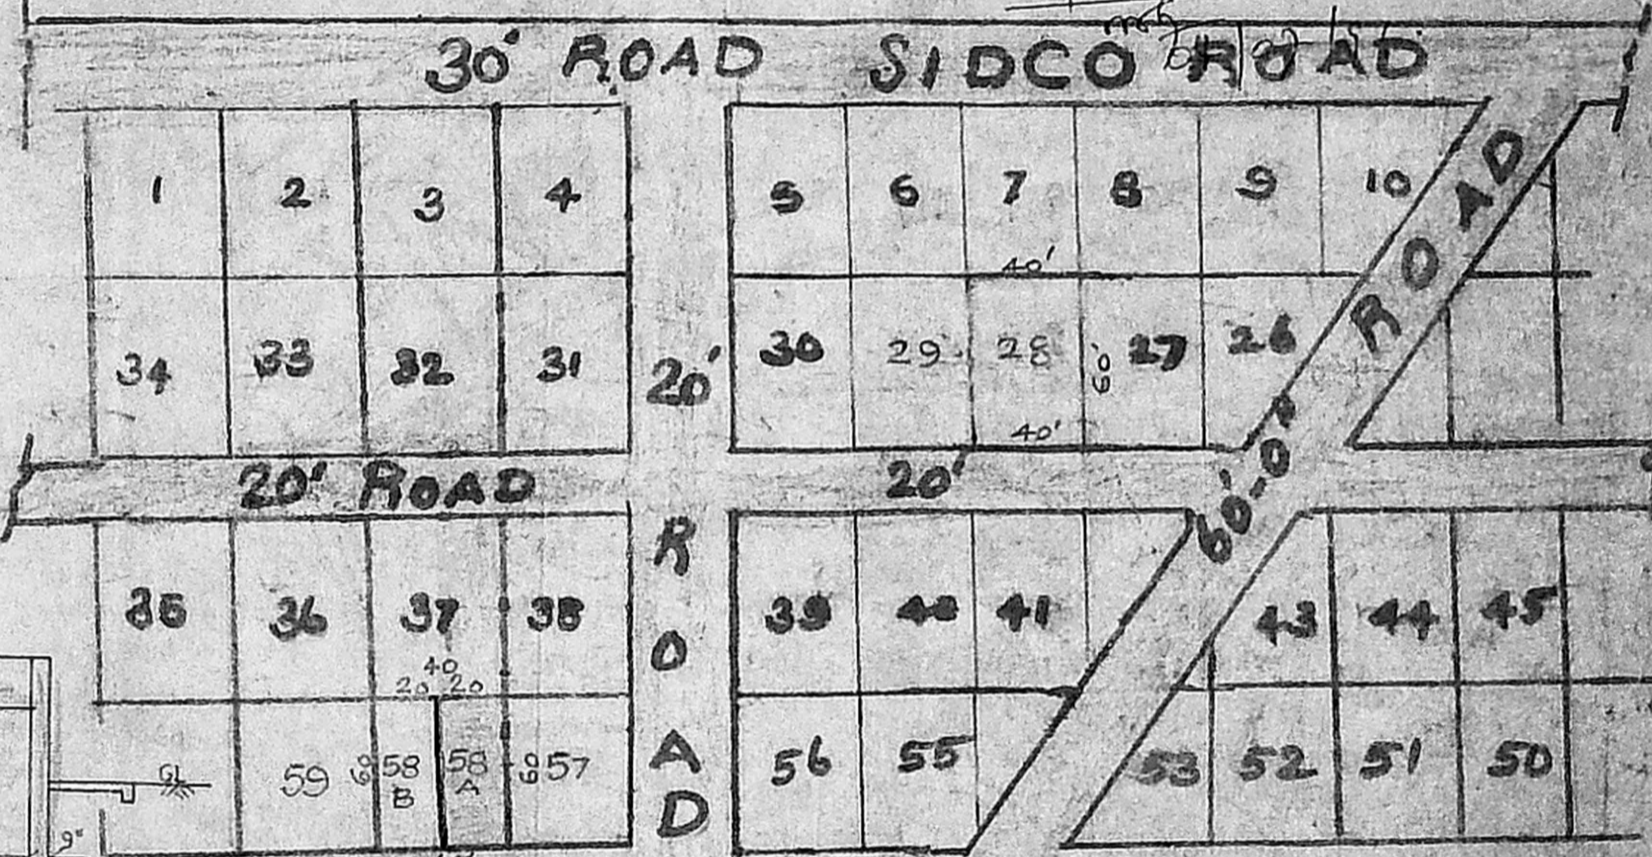 30' ROAD SIDCO ROAD
1 2 3 4 5 6 7 8 9 10
40'
34 33 32 31 30 29 28 60' 27 26
40'
20'
ROAD
60'-0"
20' ROAD 20'
35 36 37 38 39 40 41 43 44 45
40
20 20
59 60 58 B 58 A 60 57 56 55 53 52 51 50
ROAD
GL
9"